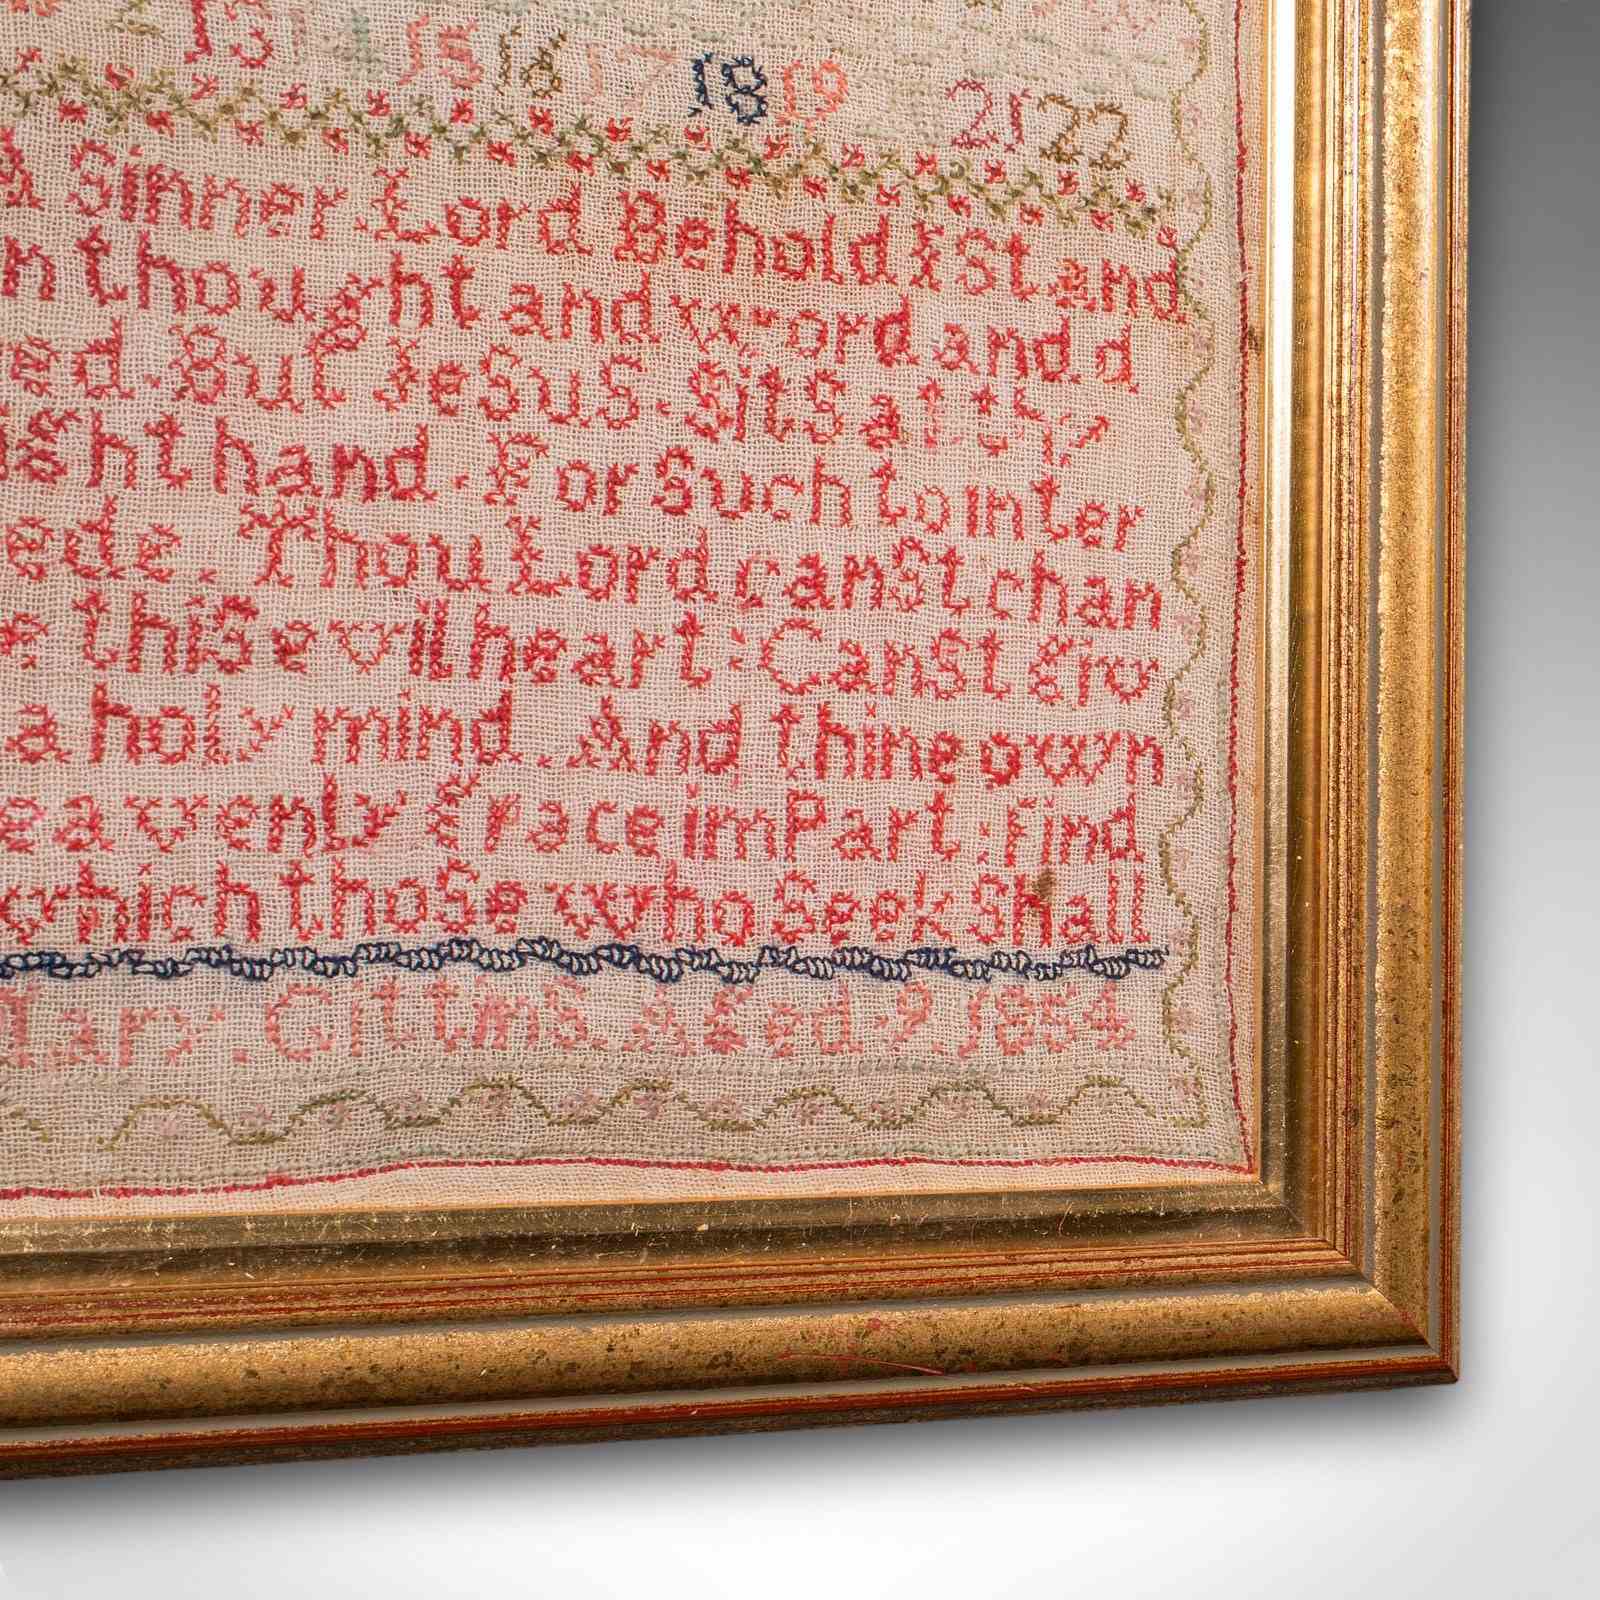 13 14 15 16 17 18 19 21 22
A Sinner Lord Behold I Stand
n thought and word and d
ed. But JeSuS. SitS at thy
ight hand. For Such to inter
ede. Thou Lord canSt chan
e this evil heart. CanSt giv
a holy mind. And thine own
eavenly Grace imPart. find
which thoSe who Seek Shall
Mary. GittinS. Aged. 9. 1854